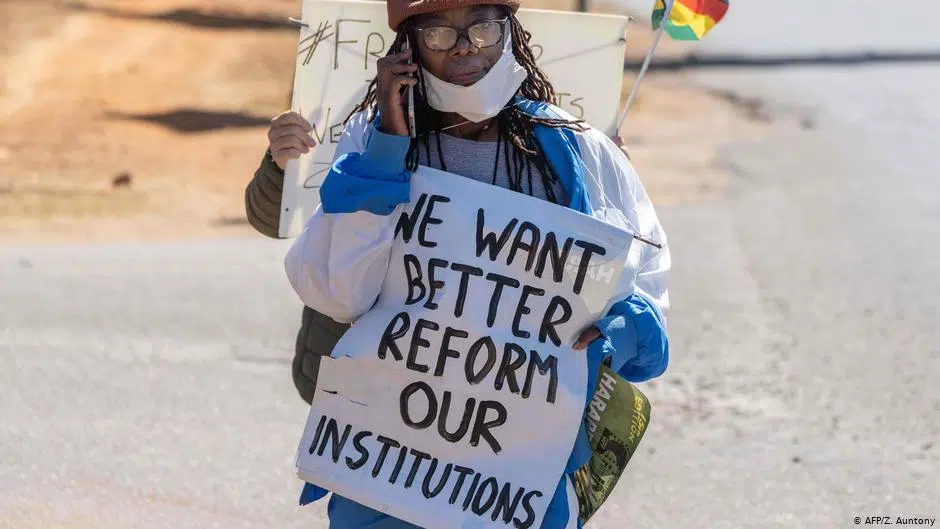 #FR
WE WANT
BETTER
REFORM
OUR
INSTITUTIONS
HARAR
EDITION
© AFP/Z. Auntony